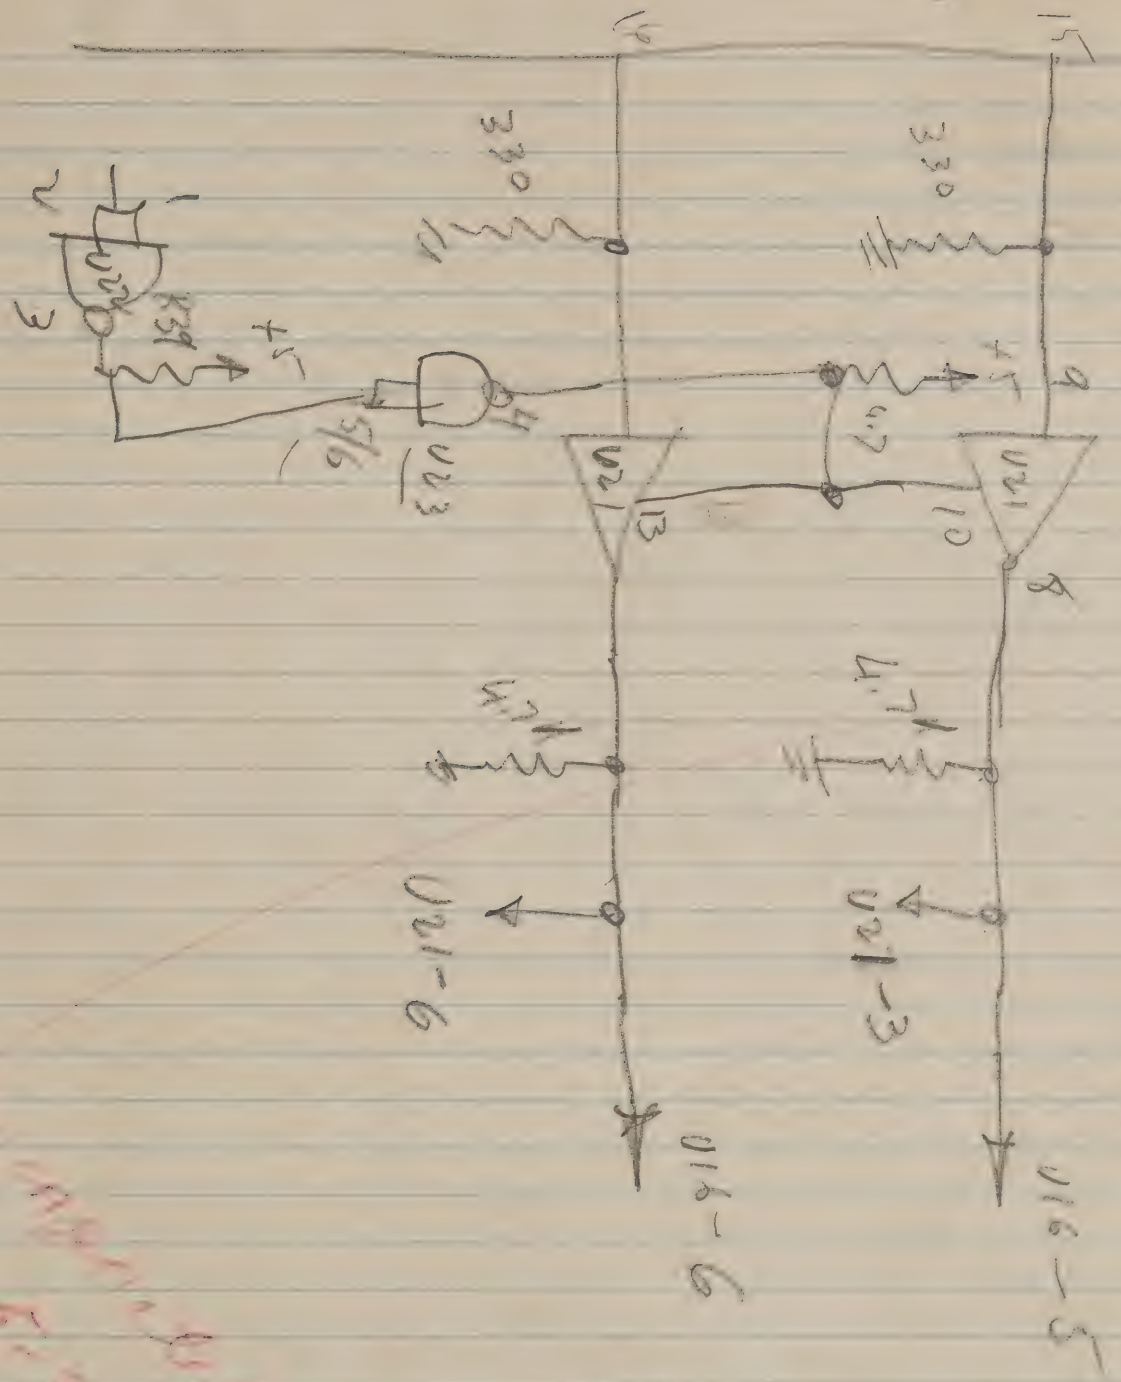 15
330
9
U21
10
8
4.7k
U21-3
U16-5
+5
4.7
16
330
U21
13
4.7k
U21-6
U16-6
4
U23
5/6
+5
R39
1
2
U22
3